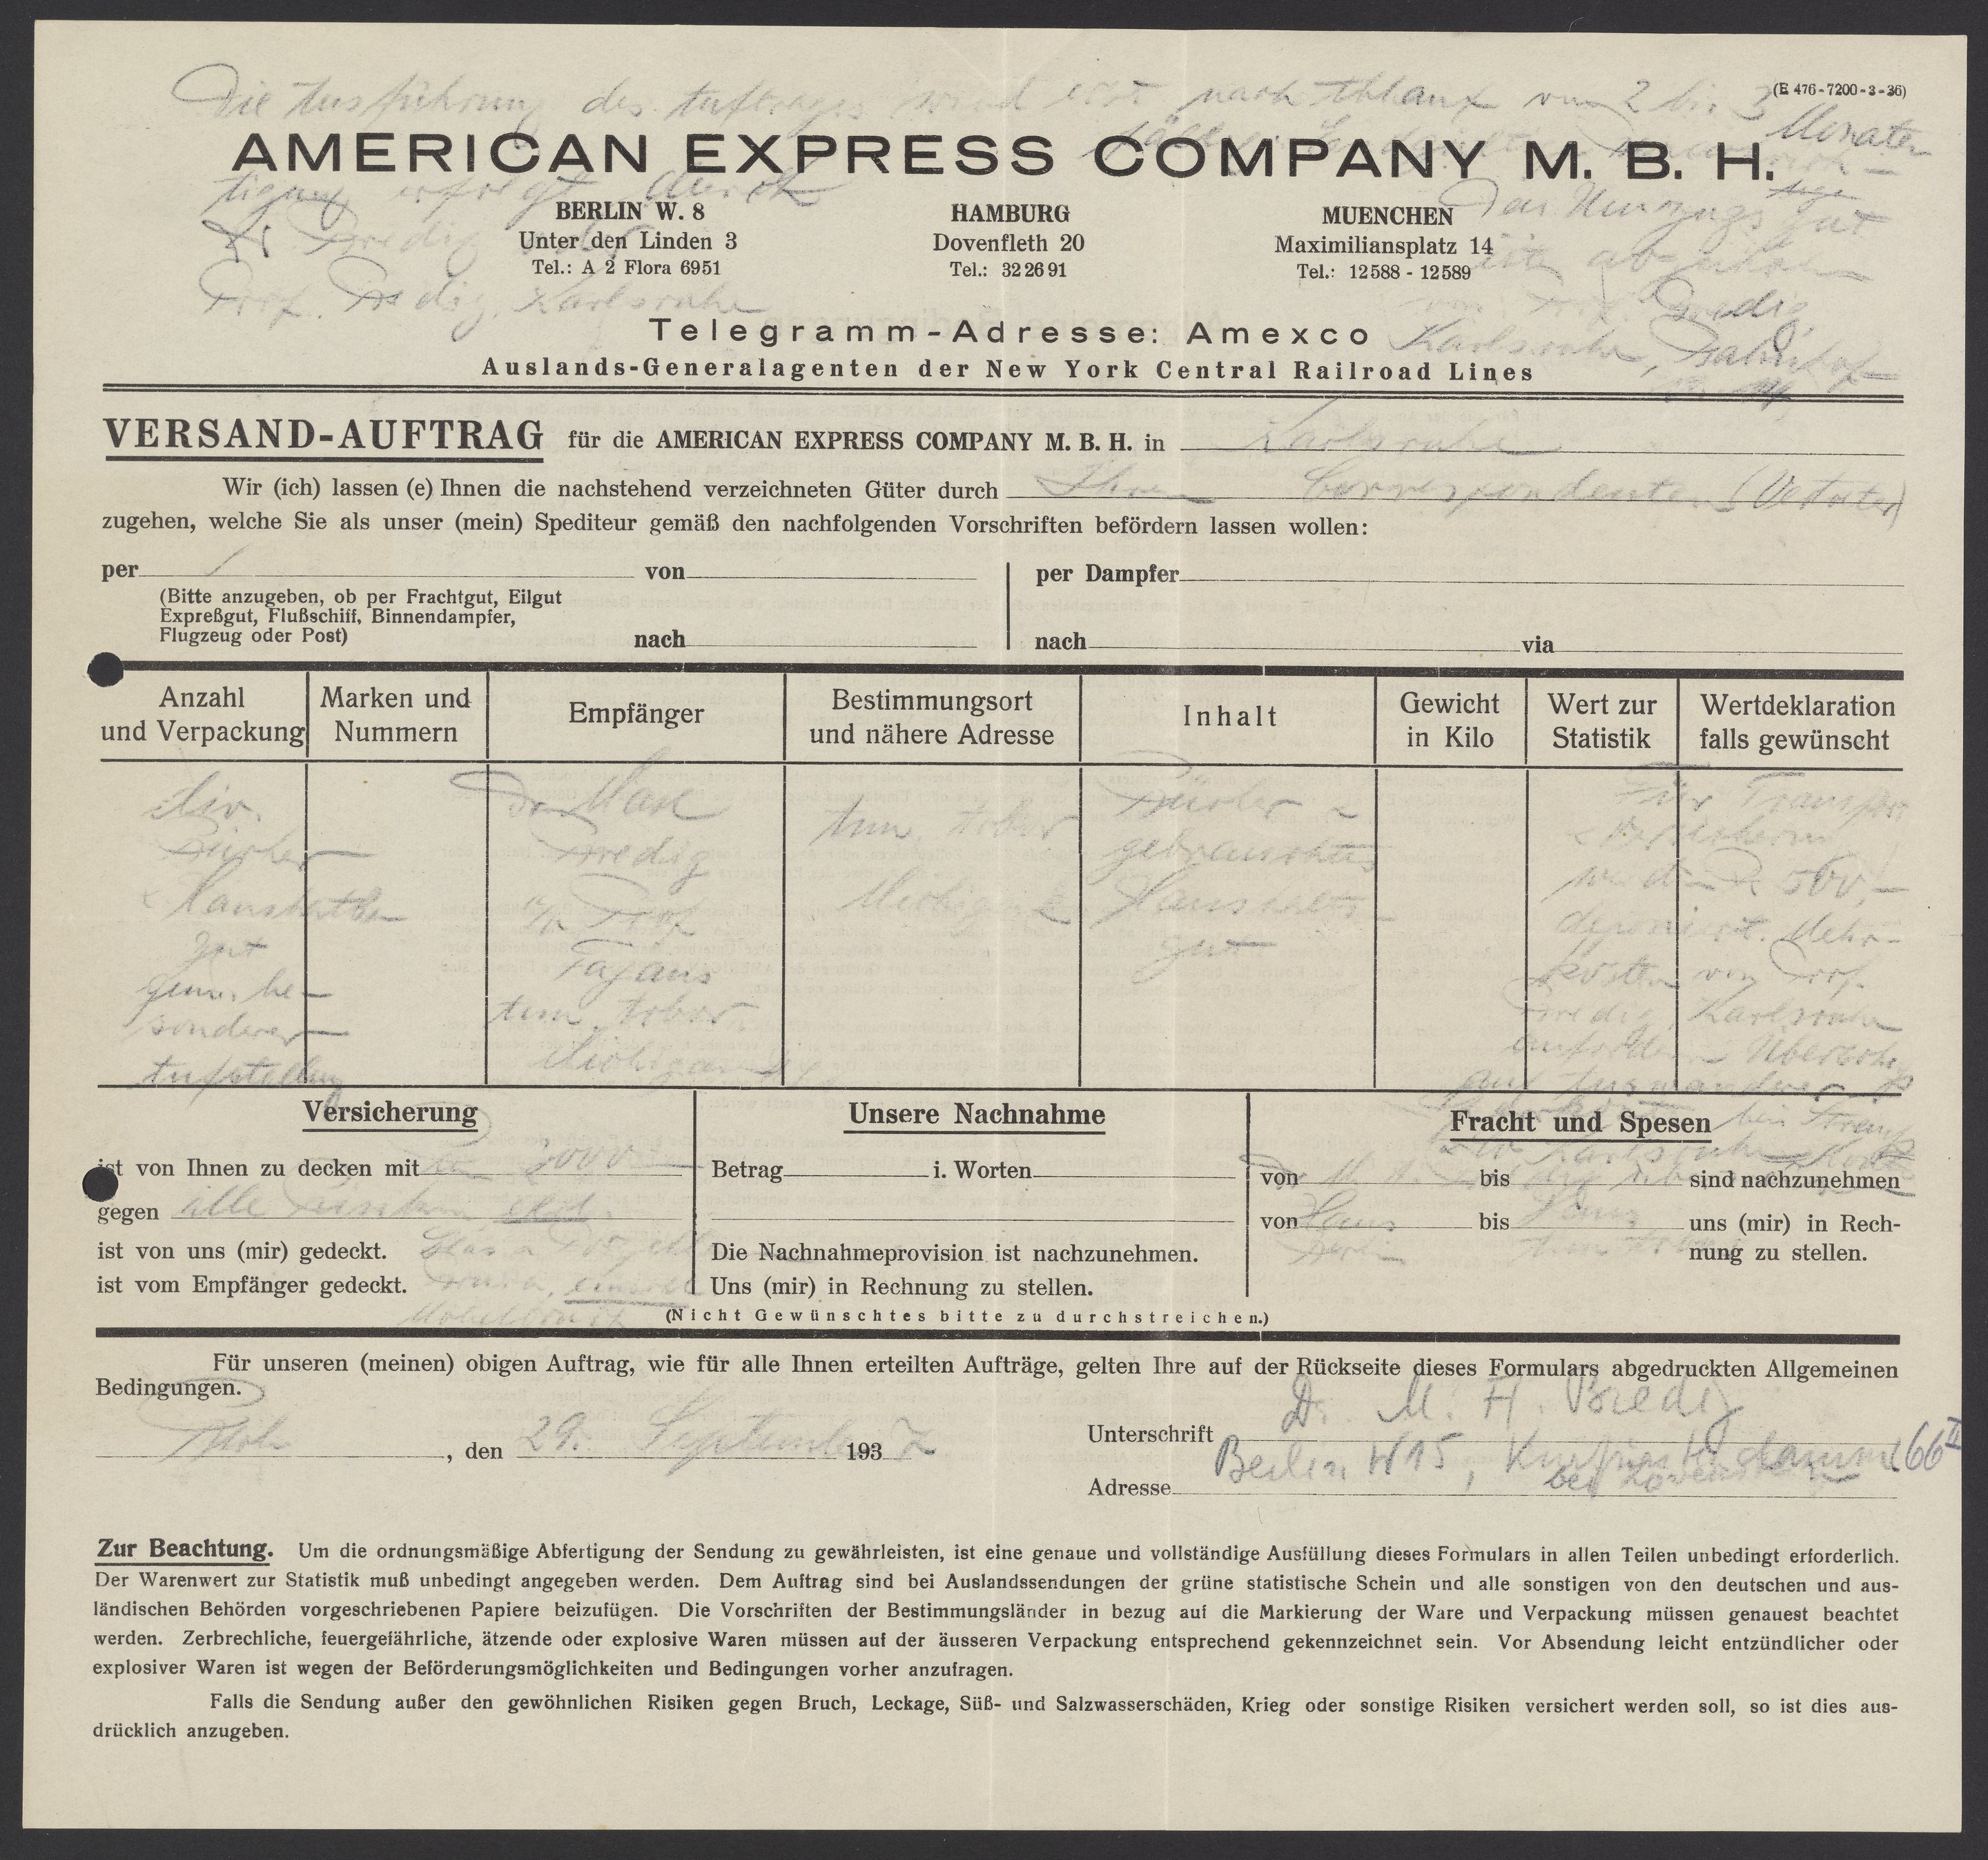 Die Ausführung des Auftrages wird erst nach Ablauf von 2 bis 3 Monaten
(E 476-7200-3-36)
AMERICAN EXPRESS COMPANY M. B. H.
erfolgt durch
Dr. Bredig oder
Prof. Bredig, Karlsruhe
Das Umzugsgut
ist abzuholen
von Prof. Bredig
Karlsruhe, Bahnhof-
BERLIN W. 8
Unter den Linden 3
Tel.: A 2 Flora 6951
HAMBURG
Dovenfleth 20
Tel.: 32 26 91
MUENCHEN
Maximiliansplatz 14
Tel.: 12588 - 12589
Telegramm-Adresse: Amexco
Auslands-Generalagenten der New York Central Railroad Lines
VERSAND-AUFTRAG für die AMERICAN EXPRESS COMPANY M. B. H. in Karlsruhe
Wir (ich) lassen (e) Ihnen die nachstehend verzeichneten Güter durch Ihren Correspondenten (Vertreter)
zugehen, welche Sie als unser (mein) Spediteur gemäß den nachfolgenden Vorschriften befördern lassen wollen:
per / von
(Bitte anzugeben, ob per Frachtgut, Eilgut
Expreßgut, Flußschiff, Binnendampfer,
Flugzeug oder Post)
nach
per Dampfer
nach via
Anzahl
und Verpackung
Marken und
Nummern
Empfänger
Bestimmungsort
und nähere Adresse
Inhalt
Gewicht
in Kilo
Wert zur
Statistik
Wertdeklaration
falls gewünscht
div.
Bücher
& Haushalts
gut
gem. be-
sonderer
Aufstellung
Dr. Max
Bredig
c/o Prof.
Fajans
Ann Arbor
Michigan
Ann Arbor
Michigan
Bücher &
gebrauchtes
Haushalts-
gut
Für Transport
& Versicherung
werden 500,-
deponiert. Mehr-
kosten von Prof.
Bredig, Karlsruhe
anfordern
Versicherung
ist von Ihnen zu decken mit 3000
gegen alle Risiken exkl.
ist von uns (mir) gedeckt.
ist vom Empfänger gedeckt.
Unsere Nachnahme
Betrag i. Worten
Die Nachnahmeprovision ist nachzunehmen.
Uns (mir) in Rechnung zu stellen.
Fracht und Spesen
von bis sind nachzunehmen
von Haus bis Haus uns (mir) in Rech-
Berlin Ann Arbor nung zu stellen.
(Nicht Gewünschtes bitte zu durchstreichen.)
Für unseren (meinen) obigen Auftrag, wie für alle Ihnen erteilten Aufträge, gelten Ihre auf der Rückseite dieses Formulars abgedruckten Allgemeinen
Bedingungen.
, den 29. September 1937
Unterschrift Dr. M. A. Bredig
Adresse Berlin W15, Kurfürstendamm 66 II
bei Löwenstein
Zur Beachtung. Um die ordnungsmäßige Abfertigung der Sendung zu gewährleisten, ist eine genaue und vollständige Ausfüllung dieses Formulars in allen Teilen unbedingt erforderlich.
Der Warenwert zur Statistik muß unbedingt angegeben werden. Dem Auftrag sind bei Auslandssendungen der grüne statistische Schein und alle sonstigen von den deutschen und aus-
ländischen Behörden vorgeschriebenen Papiere beizufügen. Die Vorschriften der Bestimmungsländer in bezug auf die Markierung der Ware und Verpackung müssen genauest beachtet
werden. Zerbrechliche, feuergefährliche, ätzende oder explosive Waren müssen auf der äusseren Verpackung entsprechend gekennzeichnet sein. Vor Absendung leicht entzündlicher oder
explosiver Waren ist wegen der Beförderungsmöglichkeiten und Bedingungen vorher anzufragen.
Falls die Sendung außer den gewöhnlichen Risiken gegen Bruch, Leckage, Süß- und Salzwasserschäden, Krieg oder sonstige Risiken versichert werden soll, so ist dies aus-
drücklich anzugeben.